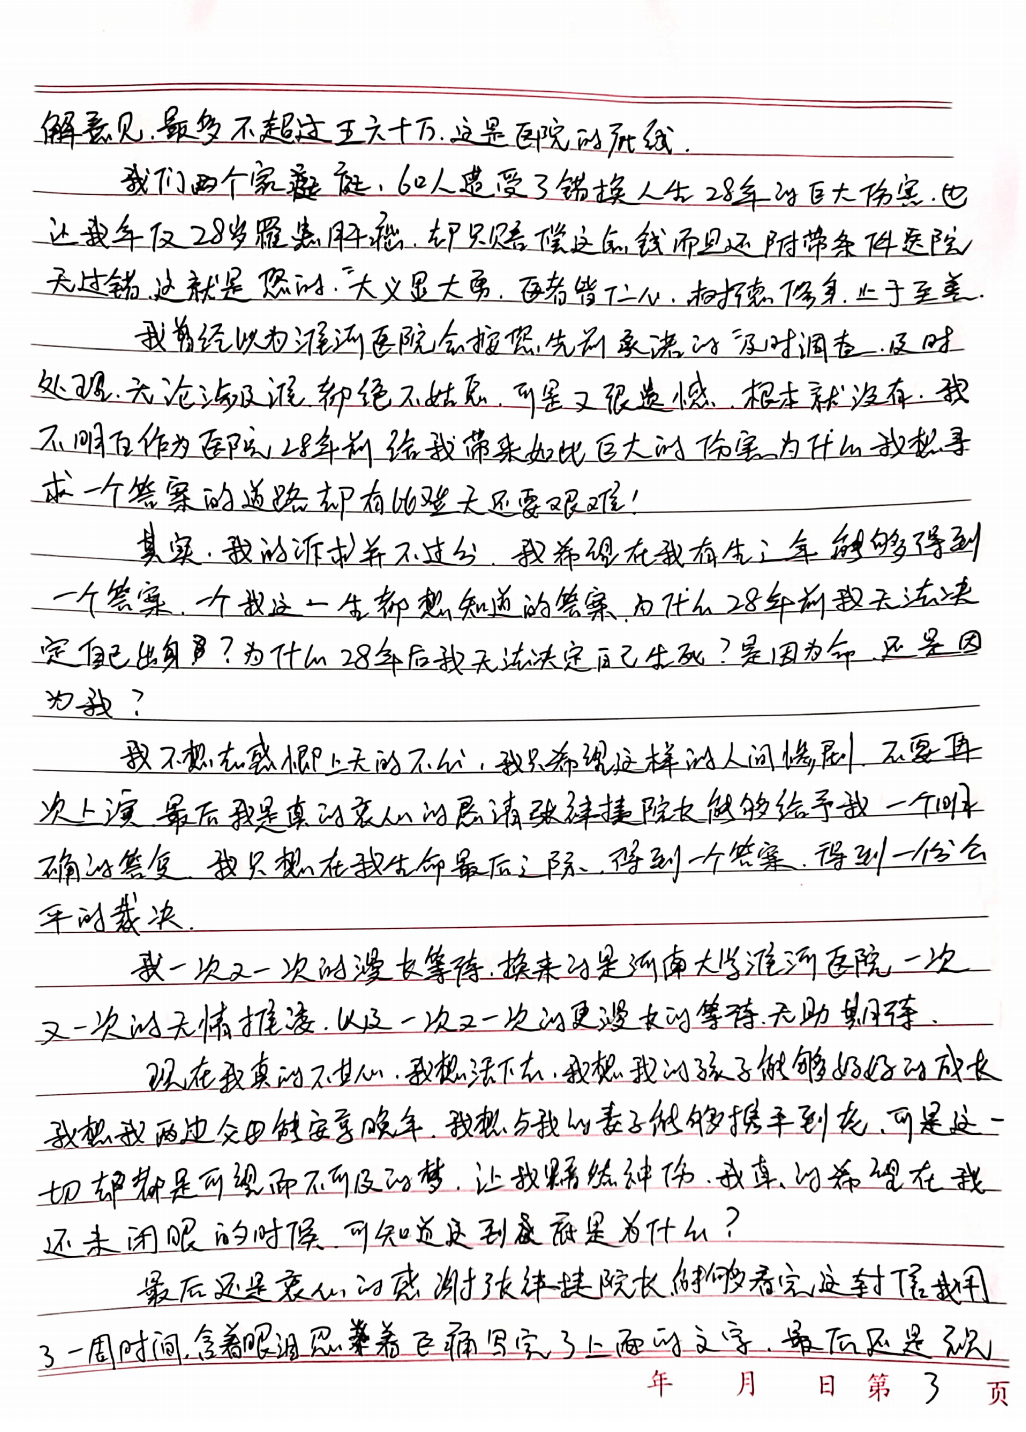 解意见,最多不超过五六十万,这是医院的死线.
我们两个家庭,60人遭受了错换人生28年的巨大伤害.也
让我年仅28岁罹患肝癌,却只赔偿这些钱而且还附带条件医院
无过错,这就是您的:“大义显大勇,医者皆仁心,树德修身,止于至善.
我曾经以为淮河医院会按照先前承诺的“及时调查,及时
处理,无论涉及谁,都绝不姑息,可是又很遗憾,根本就没有.我
不明白作为医院,28年前给我带来如此巨大的伤害,为什么我想寻
求一个答案的道路却有比登天还要艰难!
其实,我的诉求并不过分,我希望在我有生之年能够得到
一个答案,一个我这一生都想知道的答案,为什么28年前我无法决
定自己出身?为什么28年后我无法决定自己生死?是因为命,还是因
为我?
我不想去怨恨上天的不公,我只希望这样的人间惨剧,不要再
次上演,最后我是真的衷心的恳请张祎捷院长能够给予我一个明
确的答复,我只想在我生命最后之际,得到一个答案,得到一份公
平的裁决.
我一次又一次的漫长等待,换来的是河南大学淮河医院一次
又一次的无情推诿,以及一次又一次的更漫长的等待,无助期待.
现在我真的不甘心,我想活下去,我想我的孩子能够好好的成长
我想我两边父母能安享晚年,我想与我的妻子能够携手到老,可是这一
切却都是可望而不可及的梦,让我黯然神伤,我真的希望在我
还未闭眼的时候,可知道这到底是为什么?
最后还是衷心的感谢张祎捷院长能够看完这封信我用
了一周时间,含着眼泪忍着巨痛写完了上面的文字,最后还是祝
年 月 日 第 3 页